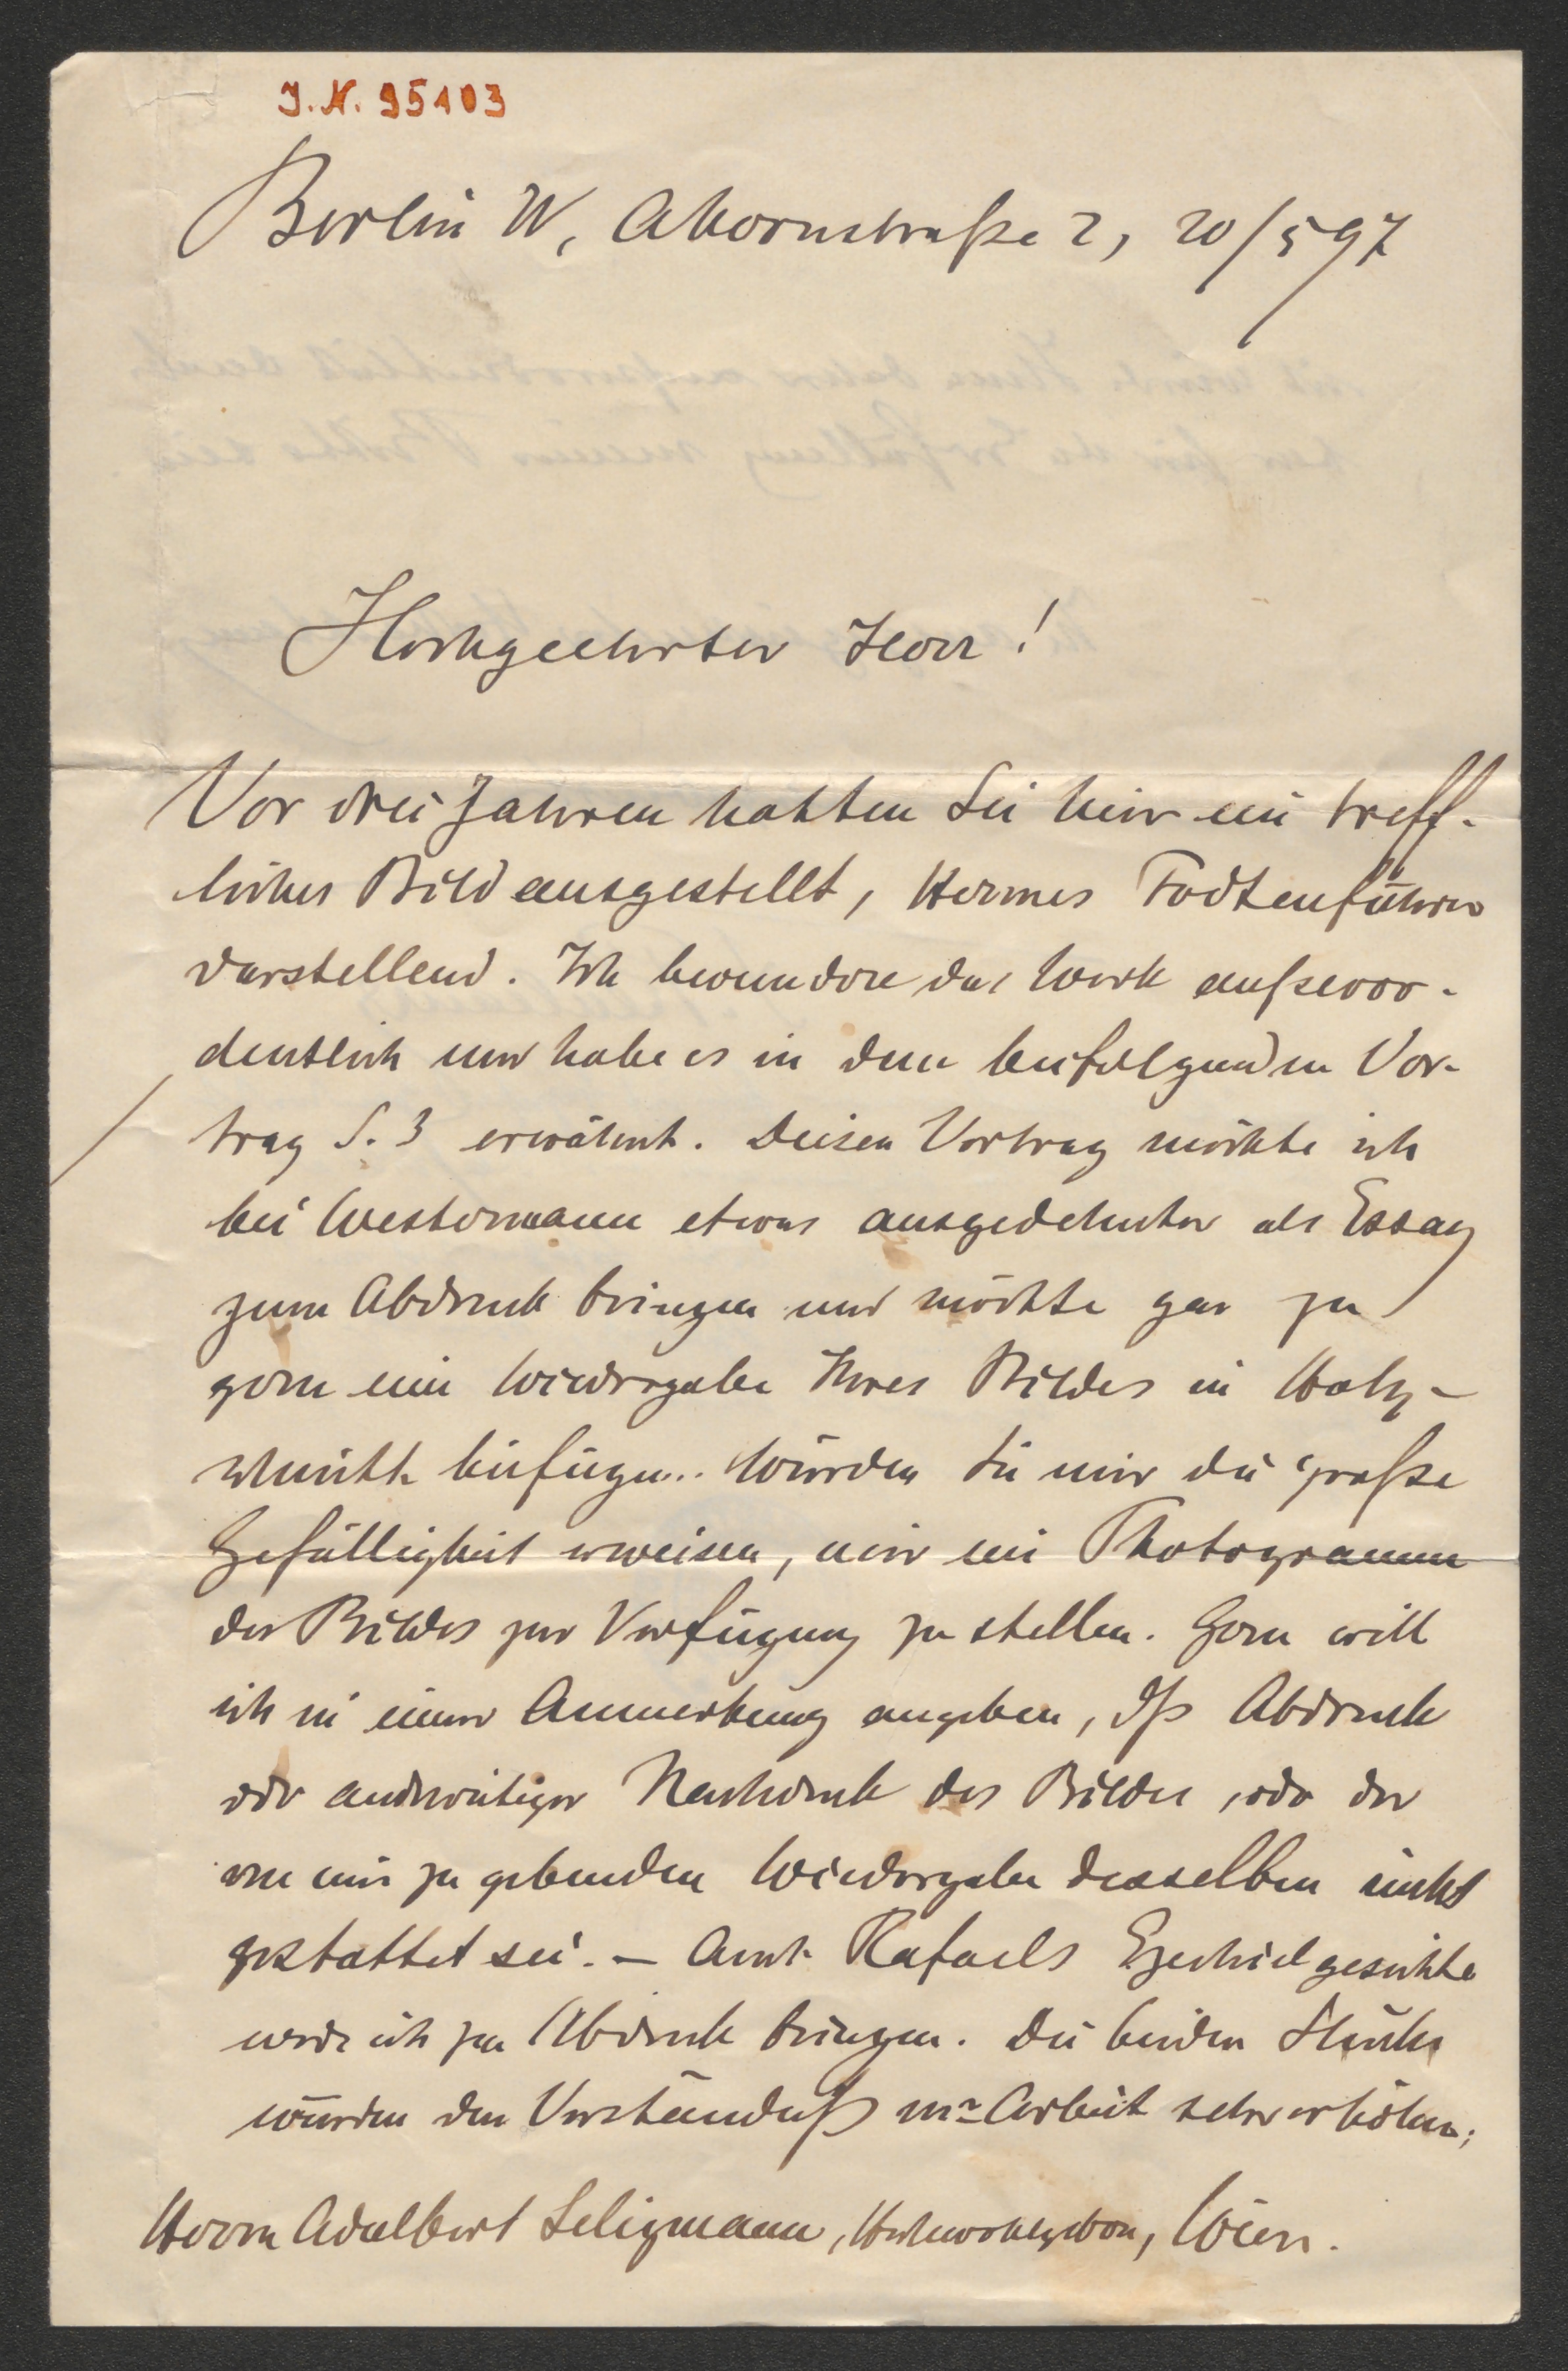 J.N. 95103
Berlin W, Ahornstraße 2, 20/5 97
Hochgeehrter Herr!
Vor drei Jahren hatten Sie hier ein treff-
liches Bild ausgestellt, Hermes Todtenführer
darstellend. Ich bewundere das Werk außeror-
dentlich und habe es in dem beifolgenden Vor-
trag S. 3 erwähnt. Diesen Vortrag möchte ich
bei Westermann etwas ausgedehnter als Essay
zum Abdruck bringen und möchte gar zu
gern eine Wiedergabe Ihres Bildes in Holz-
schnitt beifügen... Würden Sie mir die große
Gefälligkeit erweisen, mir ein Photogramm
des Bildes zur Verfügung zu stellen. Gern will
ich in einer Anmerkung angeben, dß Abdruck
oder anderweitiger Nachdruck des Bildes, oder der
von mir zu gebenden Wiedergabe desselben nicht
gestattet sei. – Auch Rafaels Ezechielgesichte
werde ich zu Abdruck bringen. Die beiden Stücke
würden den Verständniß mr Arbeit sehr erhöhen;
Herrn Adalbert Seligmann, Hochwohlgeboren, Wien.